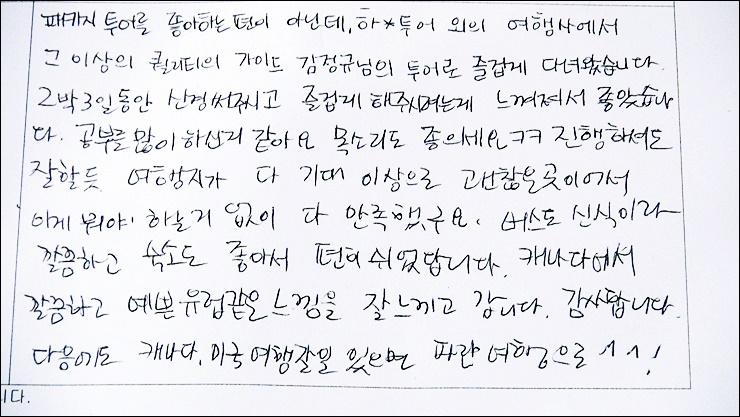 패키지 투어를 좋아하는 편이 아닌데, 하*투어 외의 여행사에서
그 이상의 퀄리티의 가이드 김정규님의 투어로 즐겁게 다녀왔습니다.
2박3일동안 신경써주시고 즐겁게 해주시려는게 느껴져서 좋았습니
다. 공부를 많이 하신거 같아요 목소리도 좋으세요ㅋㅋ 진행하셔도
잘할듯 여행지가 다 기대 이상으로 괜찮은곳이어서
이게 뭐야! 하는거 없이 다 만족했구요. 버스도 신식이라
깔끔하고 숙소도 좋아서 편히 쉬었답니다. 캐나다에서
깔끔하고 예쁜 유럽같은 느낌을 잘 느끼고 갑니다. 감사합니다.
다음에도 캐나다, 미국여행갈일 있으면 파란 여행으로 ^^!
니다.